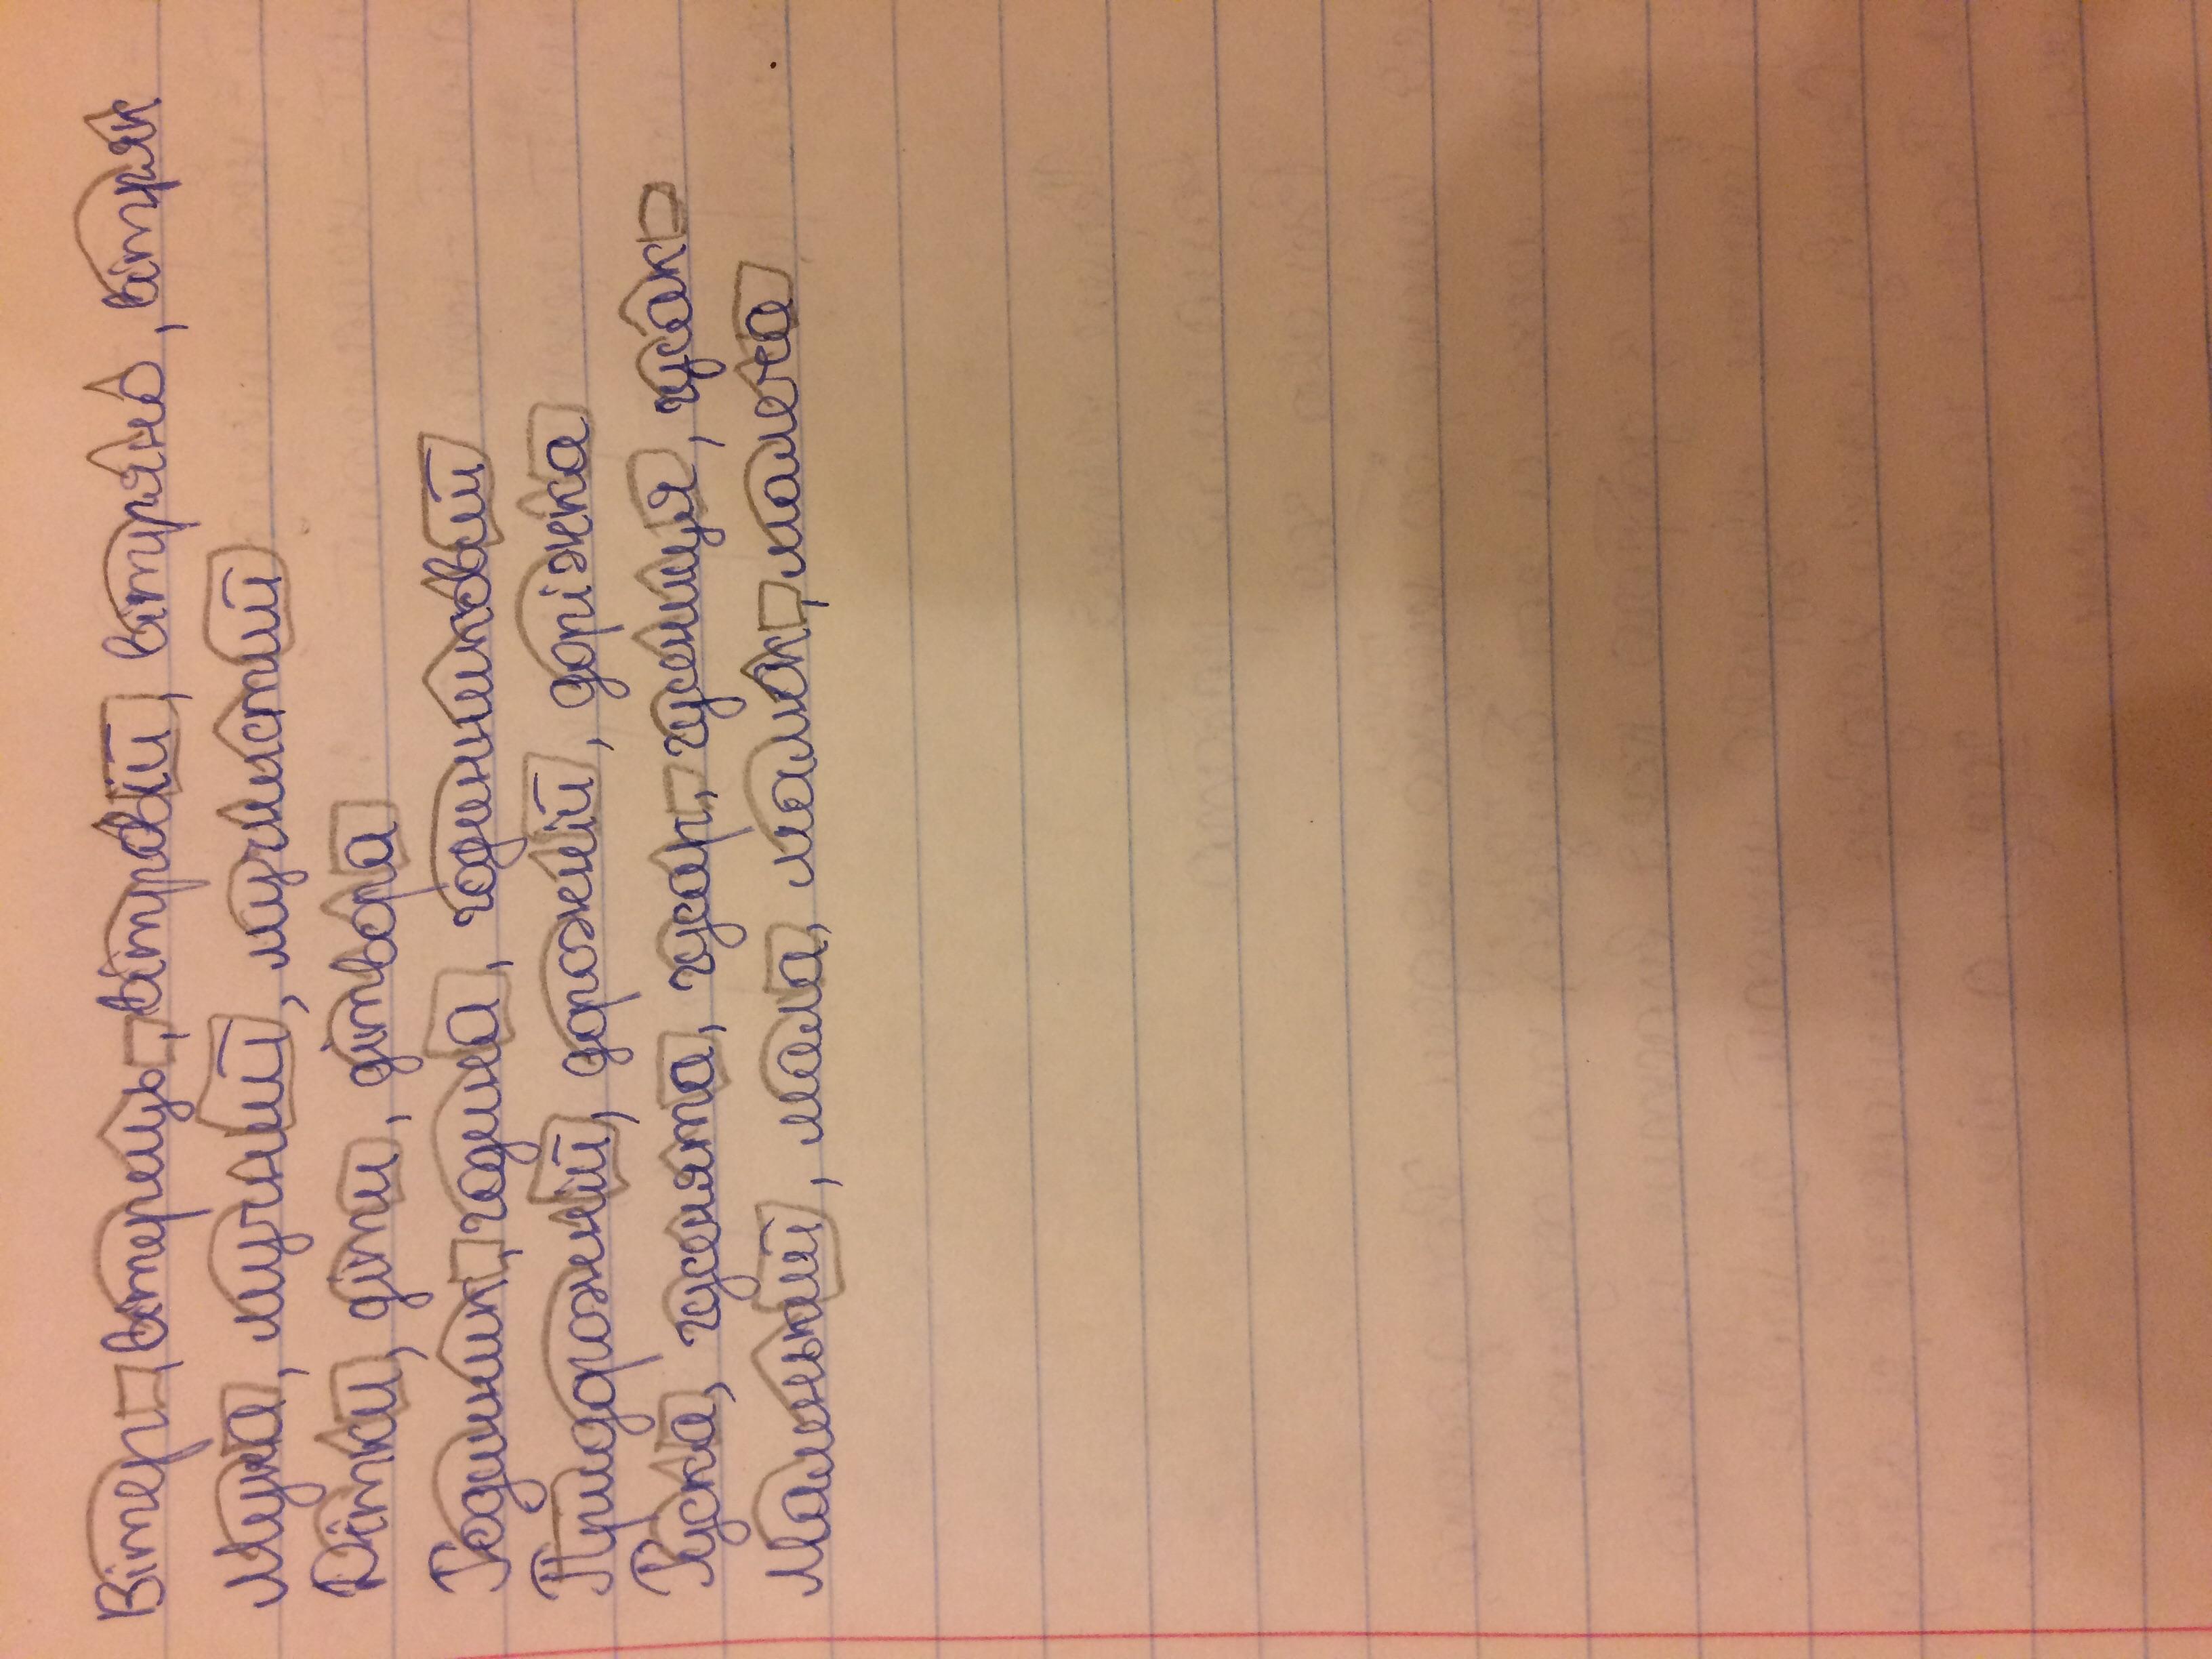 Вітер, вітерець, вітровій, вітряно, вітряк
Мука, мучний, мучнистий
Дітки, діти, дітвора
Годинник, година, годинниковий
Придорожній, дорожній, доріжка
Гуска, гусенята, гусар, гусениця, гусак
Маленький, мала, малюк, малеча